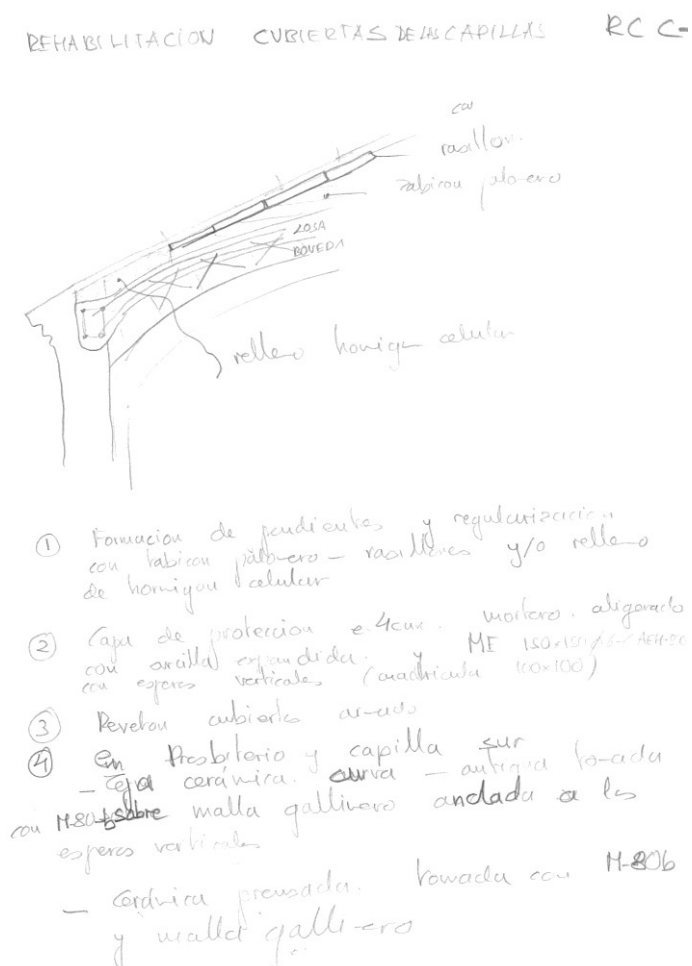 REHABILITACION CUBIERTAS DE LAS CAPILLAS RC C-
rasillon.
tabicon palomero
LOSA
BOVEDA
relleno hormigon celular
① Formacion de pendientes y regularizacion
con tabicon palomero - rasillones y/o relleno
de hormigon celular
② Capa de proteccion e. 4cm. mortero. aligerado
con arcilla expandida. y ME 150x150
con esperas verticales (cuadricula 100x100)
③ cubierta armado
④ En Presbiterio y capilla sur
- Teja cerámica. curva - antigua tomada
con M-80 sobre malla gallinero anclada a las
esperas verticales
- Cerámica prensada. tomada con M-80b
y malla gallinero